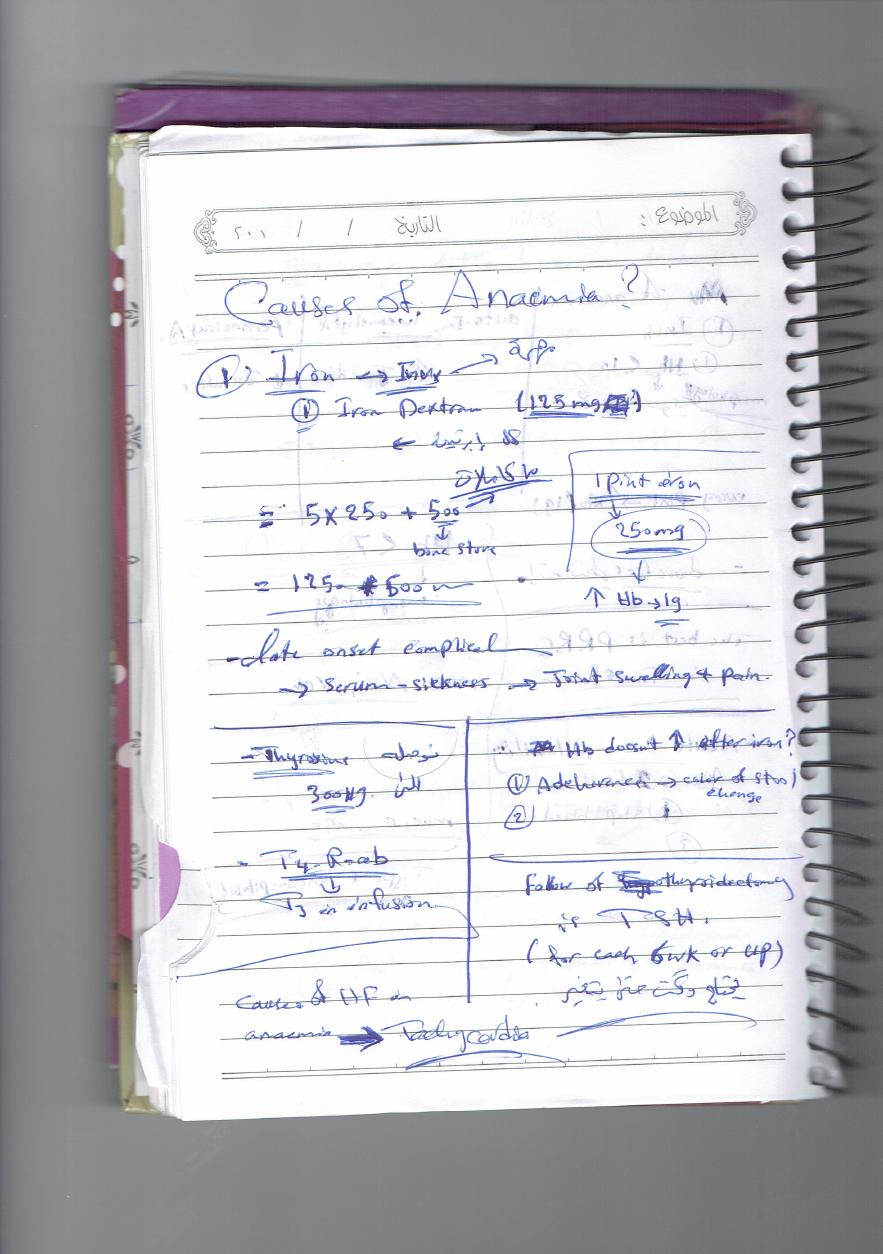 الموضوع: التاريخ / / ٢٠٠
Causes of Anaemia?
① Iron →
① Iron Dextran (125 mg)
←
= 5 x 250 + 500
↓
bone store
1 pint iron
↓
250mg
↓
↑ Hb → 1g
= 1250 + 500
- Late onset complical
→ Serum-sickness → Joint Swelling & pain.
- Thyroxine توصله
300 الى
- T4
↓
T3 in infusion
Hb doesn't ↑ after iron?
① Adeherence → color of stool
change
②
Follow of thyroidectomy
is TSH.
(for each 6wk or up)
يحتاج وكت حتى يتغير
Causes of HF in
anaemia → Tachycardia